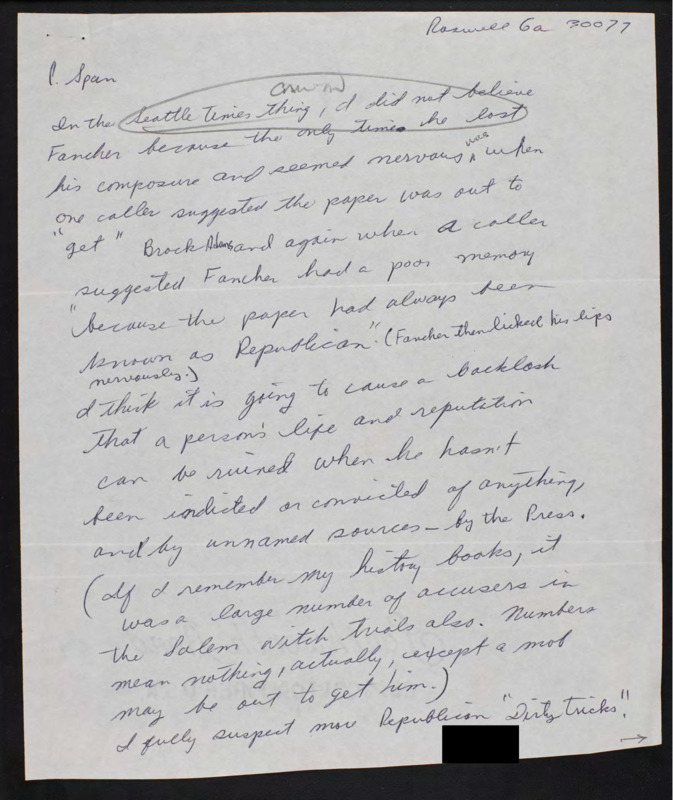 Roswell Ga 30077
C. Span
In the Seattle Times thing, I did not believe
Fancher because the only times he lost
his composure and seemed nervous was when
one caller suggested the paper was out to
"get" Brock Adams and again when a caller
suggested Fancher had a poor memory
"because the paper had always been
known as Republican". (Fancher then licked his lips
nervously.)
I think it is going to cause a backlash
that a person's life and reputation
can be ruined when he hasn't
been indicted or convicted of anything,
and by unnamed sources – by the Press.
(If I remember my history books, it
was a large number of accusers in
the Salem witch trials also. Numbers
mean nothing, actually, except a mob
may be out to get him.)
I fully suspect more Republican "Dirty tricks".
→